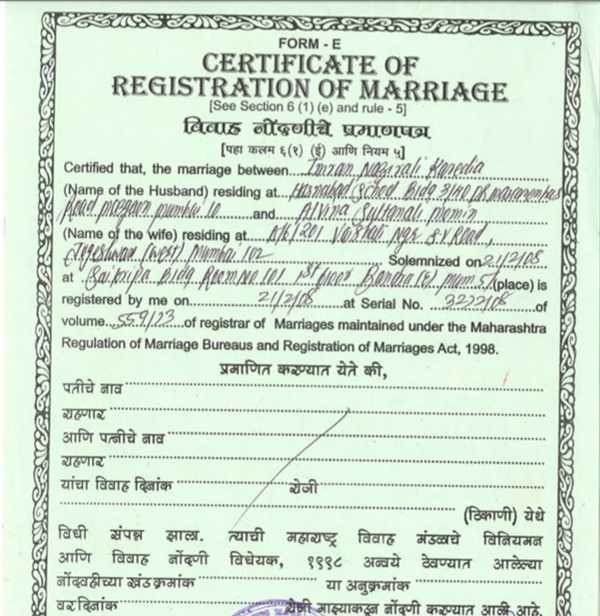 FORM - E
CERTIFICATE OF
REGISTRATION OF MARRIAGE
[See Section 6 (1) (e) and rule - 5]
विवाह नोंदणीचे प्रमाणपत्र
[पहा कलम ६(१) (ई) आणि नियम ५]
Certified that, the marriage between Imran Nazirali Karedia
(Name of the Husband) residing at Hasnabad Bldg
Road mazgaon mumbai 10 and Alvina Sultanali Memin
(Name of the wife) residing at 201 Vaishali Ngr S V Road,
Jogeshwari (west) mumbai 102 Solemnized on 21/2/08
at Saikripa Bldg Room No 101 1st floor Bandra (E) Mum 51 (place) is
registered by me on 21/2/08 at Serial No. 3222/08 of
volume 559/23 of registrar of Marriages maintained under the Maharashtra
Regulation of Marriage Bureaus and Registration of Marriages Act, 1998.
प्रमाणित करण्यात येते की,
पतीचे नाव
राहणार
आणि पत्नीचे नाव
राहणार
यांचा विवाह दिनांक रोजी
(ठिकाणी) येथे
विधी संपन्न झाला. त्याची महाराष्ट्र विवाह मंडळाचे विनियमन
आणि विवाह नोंदणी विधेयक, १९९८ अन्वये ठेवण्यात आलेल्या
नोंदवहीच्या खंड क्रमांक या अनुक्रमांक
वर दिनांक रोजी माझ्याकडून नोंदणी करण्यात आली आहे.